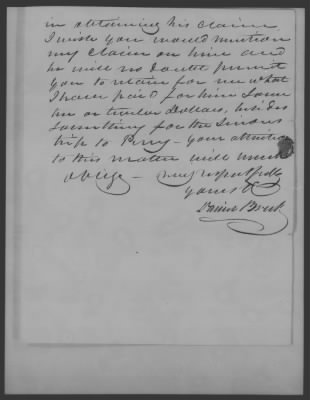 in obtaining his claim
I wish you would mention
my claim on him and
he will no doubt permit
you to retain for me what
I have paid for him some
ten or twelve Dollars, besides
something for the
trip to Perry - your attention
to this matter will much
oblige - very respectfully
yours &c
Daniel